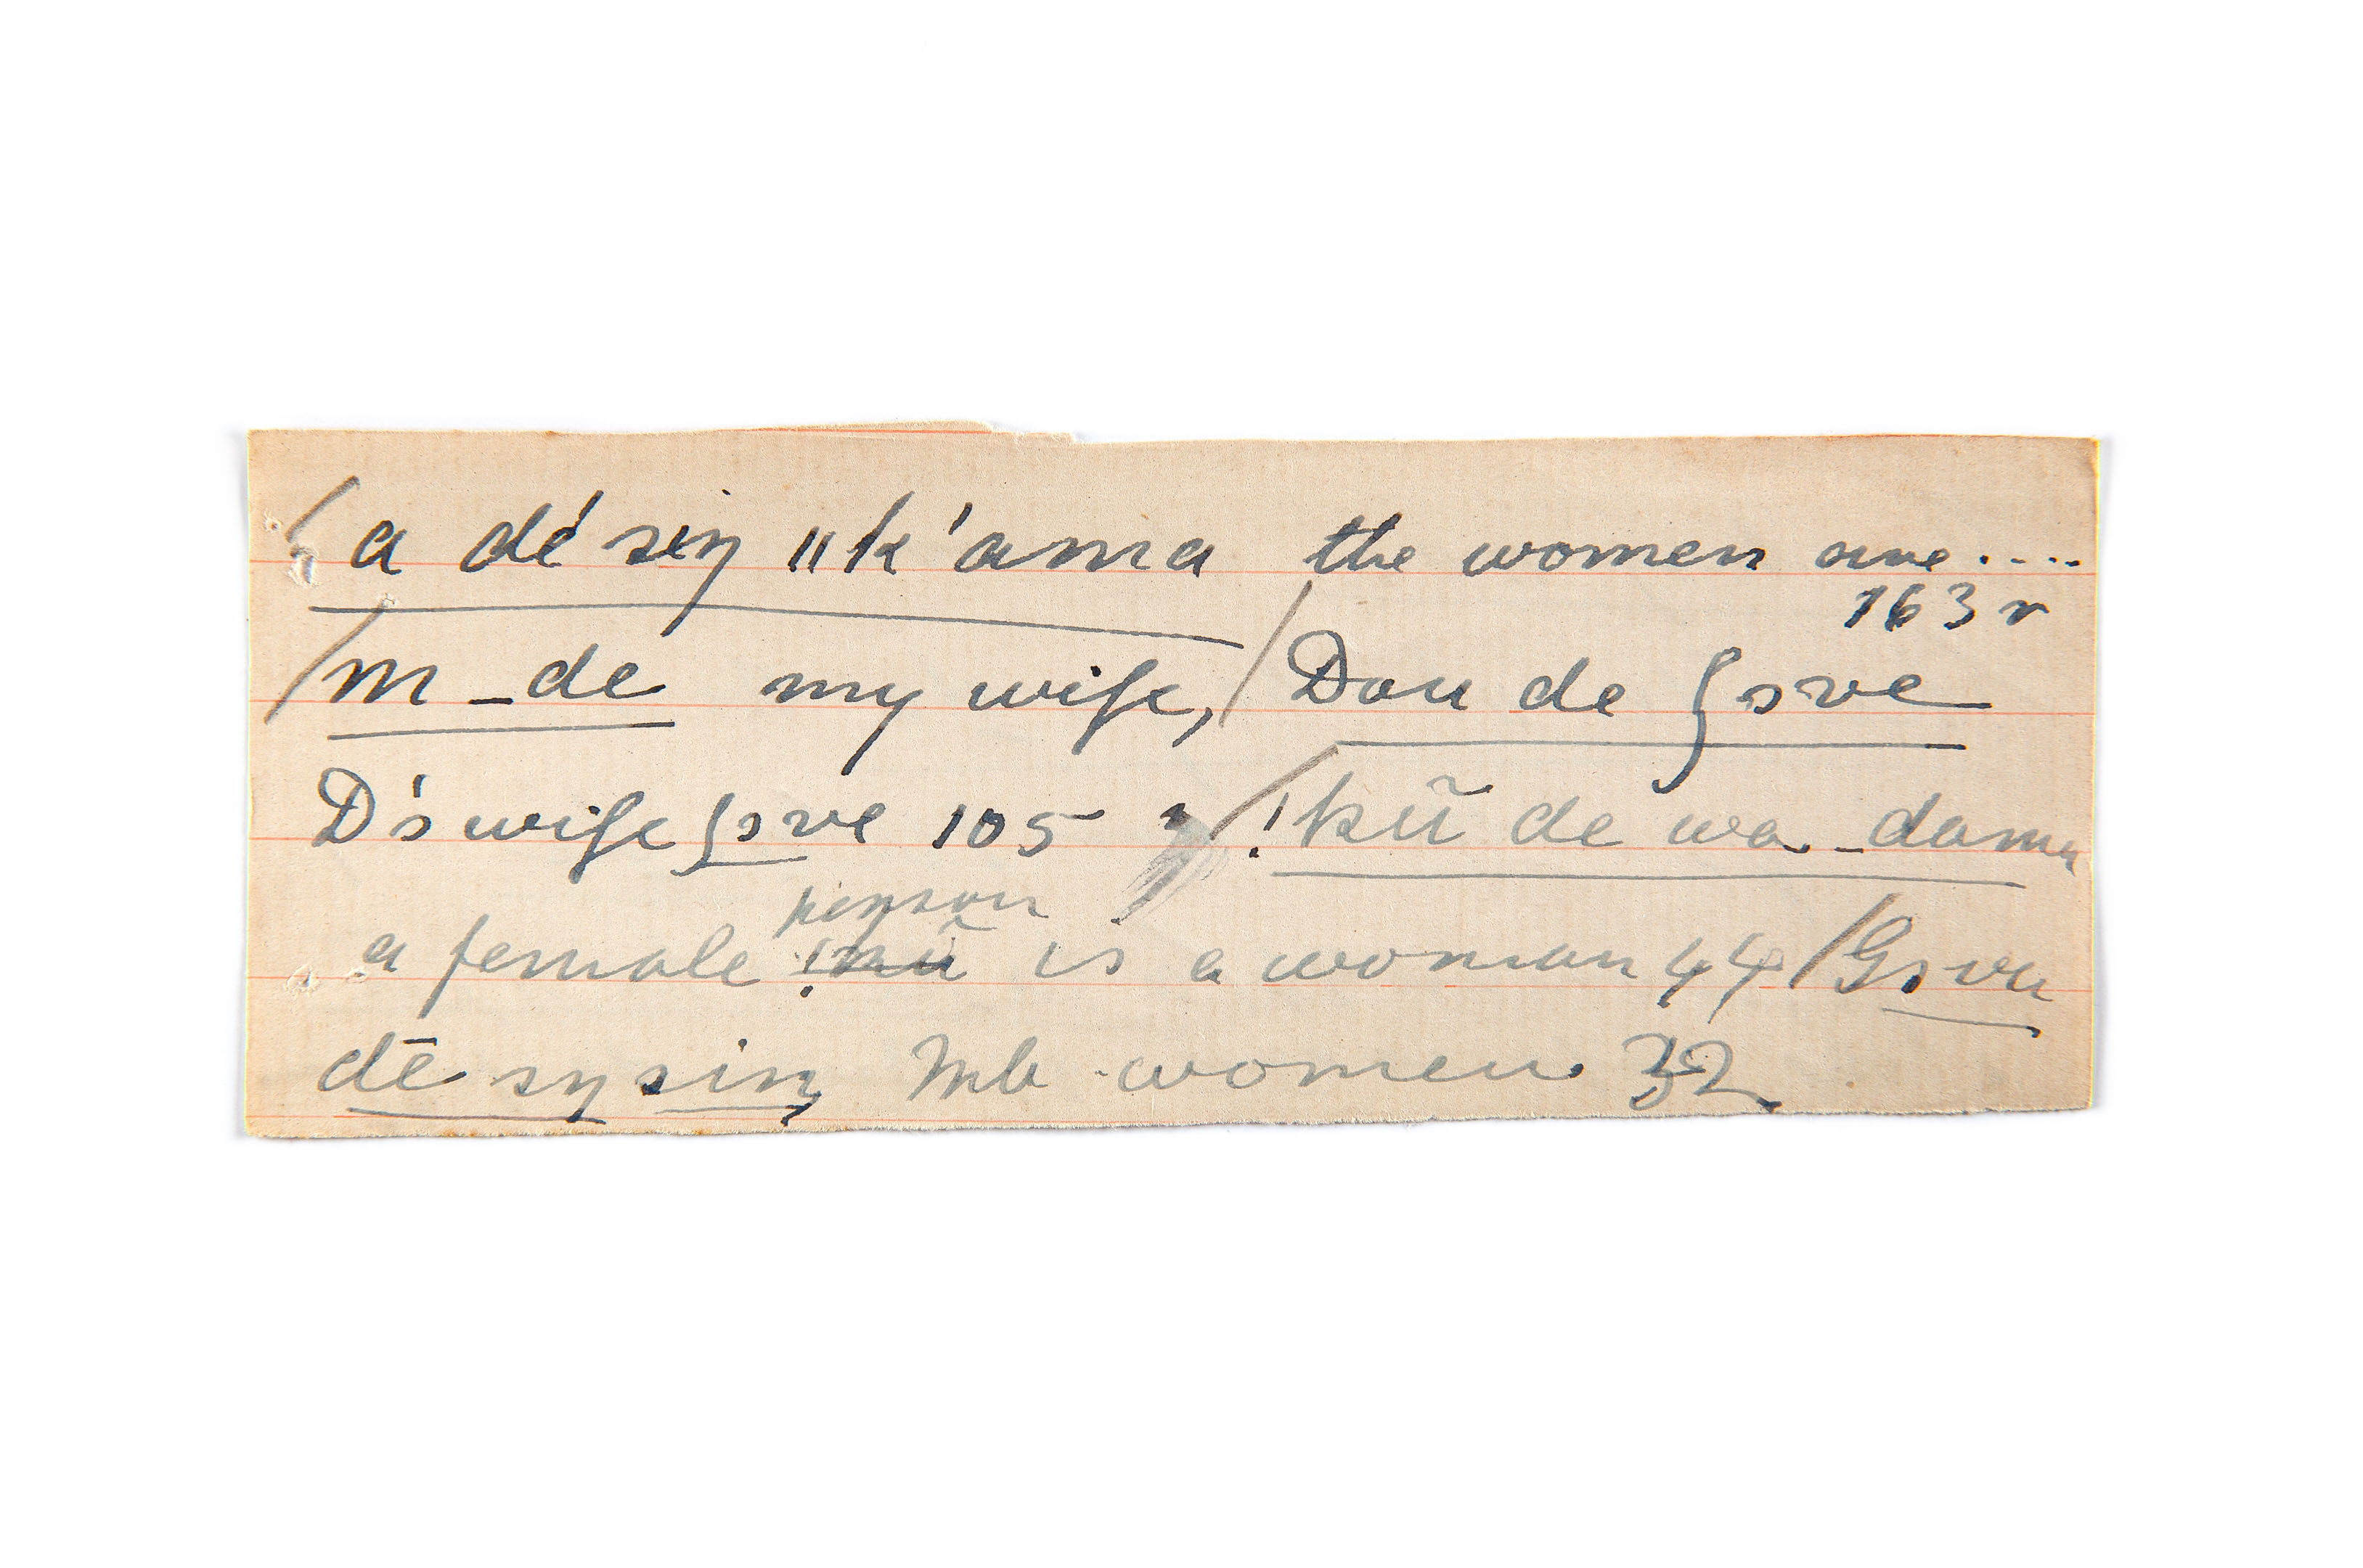 a dé siŋ ǁk'ama the women are....
163 r
/m_de my wife, / Dau de ʃɔve
D's wife ʃɔve 105 / !kũ de wa_dama
person
a female !kũ is a woman 44 / Gɔva
dē sŋ siŋ Mb women 32